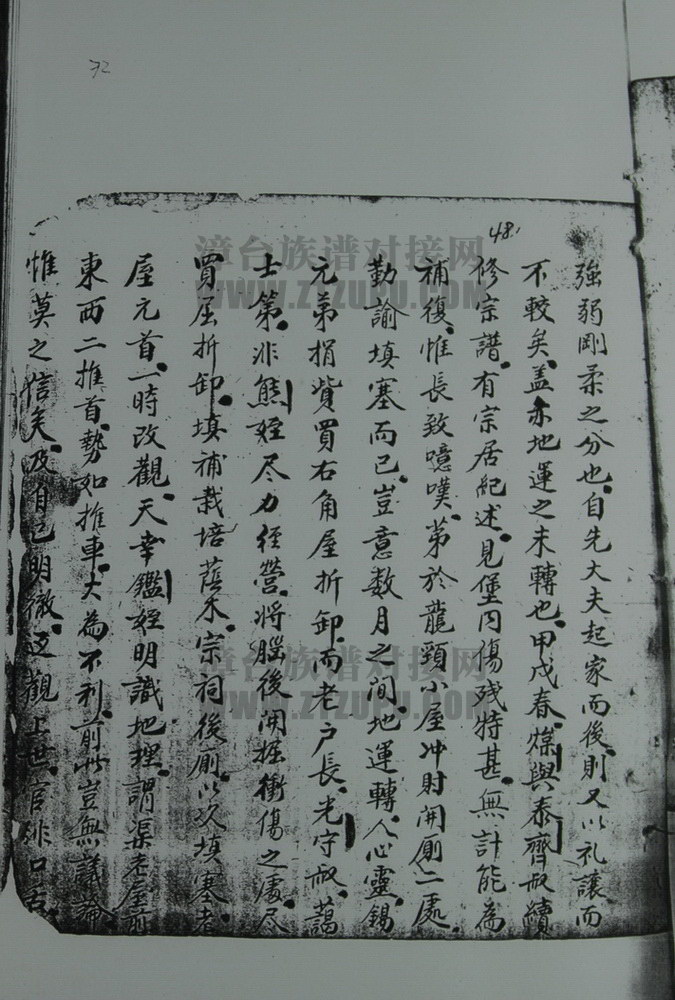 72
48.
強弱剛柔之分也自先大夫起家而後則又以礼讓而
不較矣蓋亦地運之未轉也甲戌春煤與泰齊叔續
修宗譜有宗居紀述見堡内傷残特甚無計能為
補復惟長致噫嘆第於龍頸小屋冲射開廁二處
勤諭填塞而已豈意数月之间地運轉人心靈錫
元弟捐貲買右角屋折卸而老户長光守叔藹
士第非熊姪尽力径營将腦後開掘衝傷之處尽
買屋折卸填補栽培蔭木宗祠後廁以久填塞老
屋元首一時改觀天幸鑑姪明識地理謂渠老屋前
東西二推首勢如推車大為不利前此豈無議論
惟莫之信矣及自己明徹返觀上世官緋口舌
漳台族谱对接网
WWW.ZTZUPU.COM
漳台族谱对接网
WWW.ZTZUPU.COM